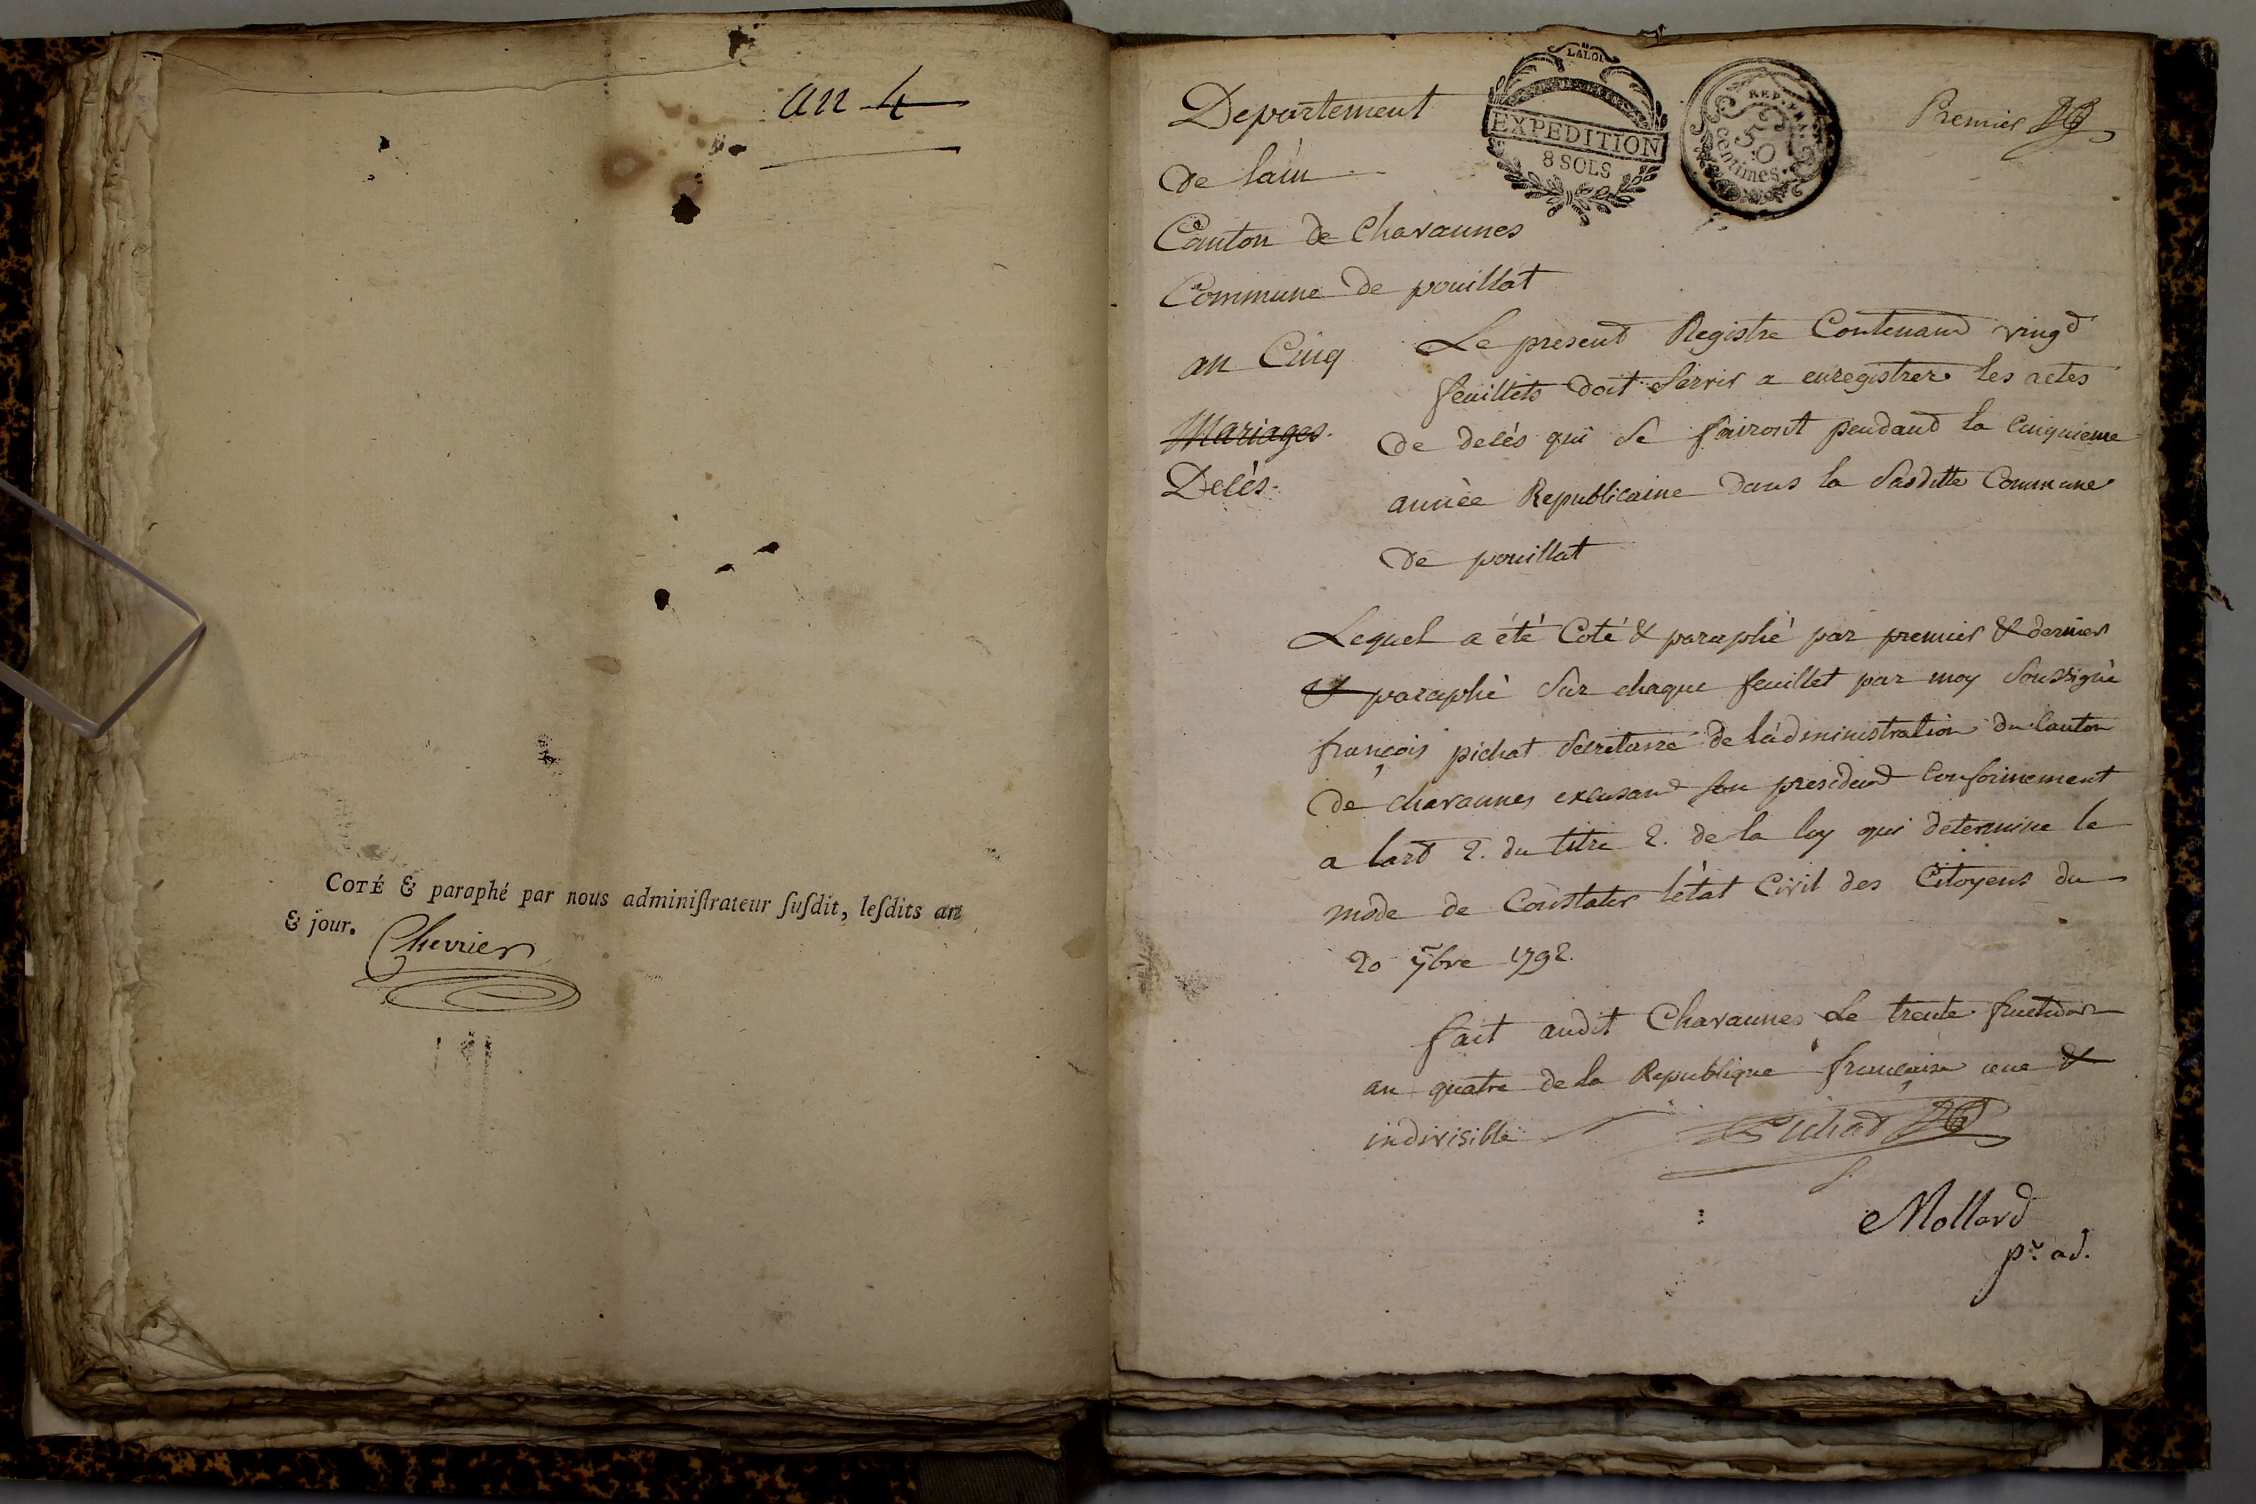 an 4
COTÉ & paraphé par nous adminiſtrateur ſuſdit, leſdits an
& jour.
Chevrier
LALOI
EXPEDITION
8 SOLS
REP. FRA.
50
centimes
Premier
Departement
de lain
Canton de Chavannes
Commune de pouillat
an Cinq
Mariages.
Delès.
Le present Registre Contenand vingd
feuillets doit Servir a enregistrer les actes
de delés qui Se fairont pendand la Cinquieme
année Republicaine dans la Sasditte Commune
de pouillat
Lequel a été Coté & paraphé par premier & dernier
& paraphé Sur chaque feuillet par moy Soussigné
françois pichat Secretaire de l'administration du Canton
de chavannes excusand son presidend Conformement
a lard 2. du titre 2. de la loy qui determine le
mode de Constater l'état Civil des Citoyens du
20 7bre 1792.
fait audit Chavannes Le trente fructidor
an quatre de la Republique francaise une &
indivisible
Pichat
S.
Mollard
pr. ad.